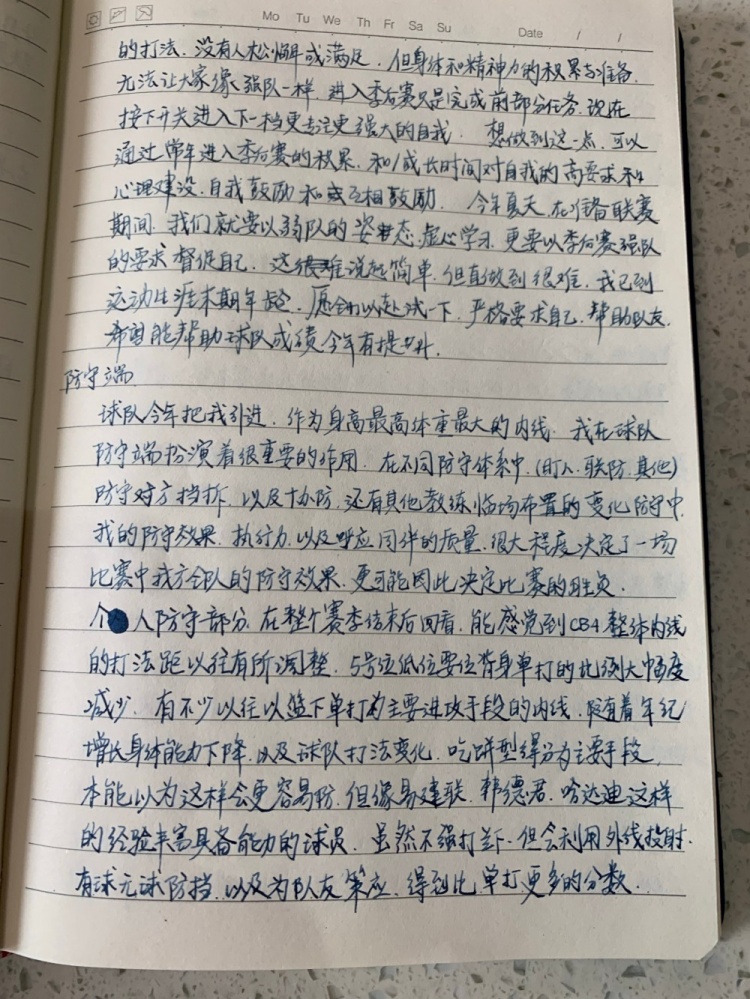 Mo Tu We Th Fr Sa Su Date / /
的打法、没有人松懈或满足，但身体和精神力的积累与准备，
无法让大家像强队一样，进入季后赛只是完成前部分任务，现在
按下开关进入下一档更专注更强大的自我. 想做到这一点，可以
通过常年进入季后赛的积累，和/或长时间对自我的高要求和
心理建设，自我鼓励和或互相鼓励. 今年夏天，在准备联赛
期间，我们就要以弱队的姿态，虚心学习，更要以季后赛强队
的要求督促自己. 这很难说起简单，但真做到很难，我已到
运动生涯末期年龄，愿全力以赴试一下，严格要求自己，帮助队友，
希望能帮助球队成绩今年有提升.
防守端
球队今年把我引进，作为身高最高体重最大的内线，我在球队
防守端扮演着很重要的作用. 在不同防守体系中，(盯人、联防、其他)
防守对方挡拆，以及协防，还有其他教练临场布置的变化防守中，
我的防守效果、执行力、以及呼应同伴的质量，很大程度决定了一场
比赛中我方全队的防守效果，更可能因此决定比赛的胜负.
个人防守部分，在整个赛季结束后回看，能感觉到CBA整体内线
的打法距以往有所调整. 5号位低位要位背身单打的比例大幅度
减少. 有不少以往以篮下单打为主要进攻手段的内线，随着年纪
增长身体能力下降，以及球队打法变化，吃饼型得分为主要手段，
本能以为这样会更容易防，但像易建联、韩德君、哈达迪这样
的经验丰富具备能力的球员，虽然不强打篮下，但会利用外线投射.
有球无球防挡，以及为队友策应，得到比单打更多的分数.